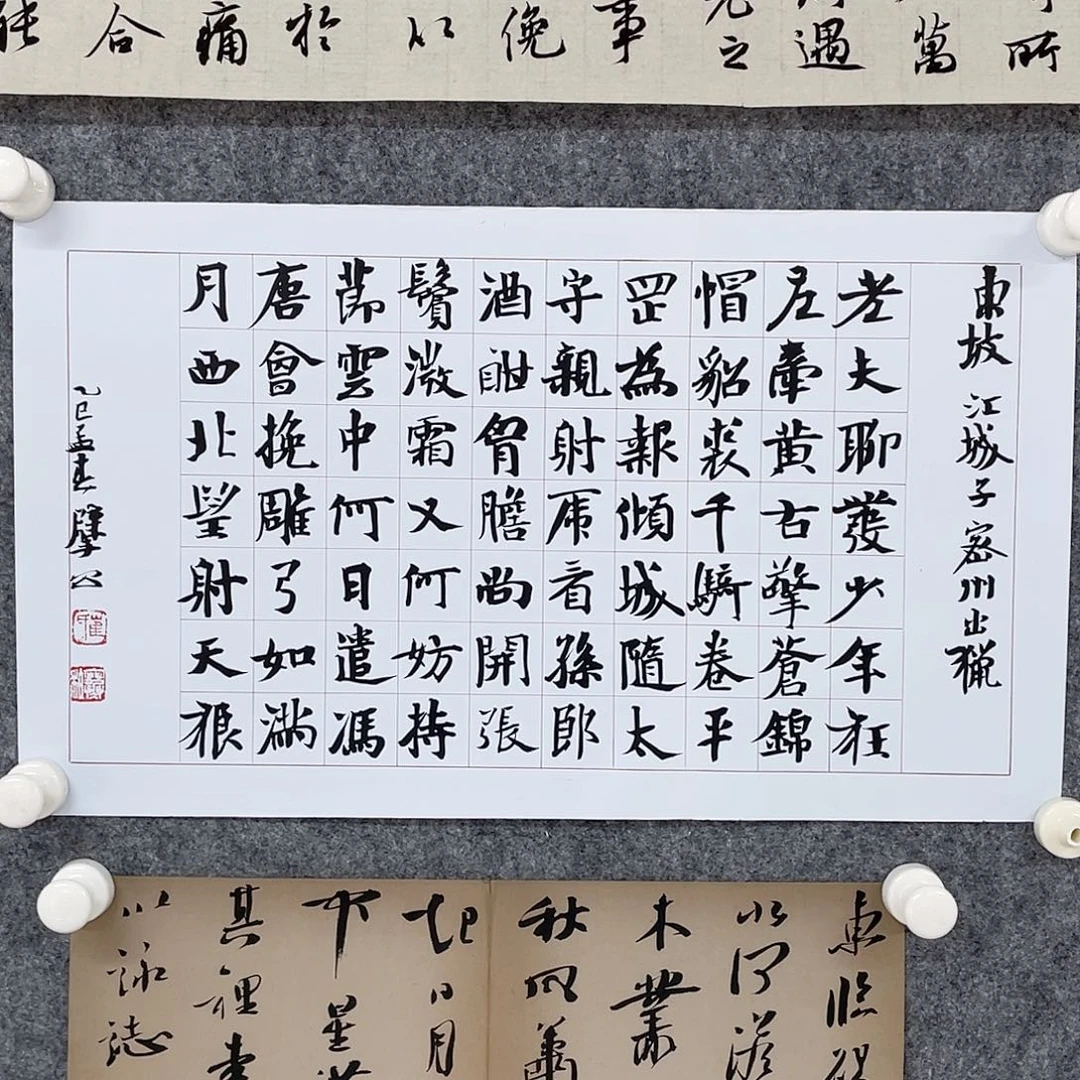 所
萬
遇
之
事
俛
以
於
痛
合
東坡 江城子 密州出獵
老夫聊發少年狂
左牽黃右擎蒼錦
帽貂裘千騎卷平
罡為報傾城隨太
守親射虎看孫郎
酒酣胷膽尚開張
鬢微霜又何妨持
節雲中何日遣馮
唐會挽雕弓如滿
月西北望射天狼
乙巳孟春
東臨碣
水何澹
木叢
秋風蕭
起日月
中星漢
其裡幸
以詠誌